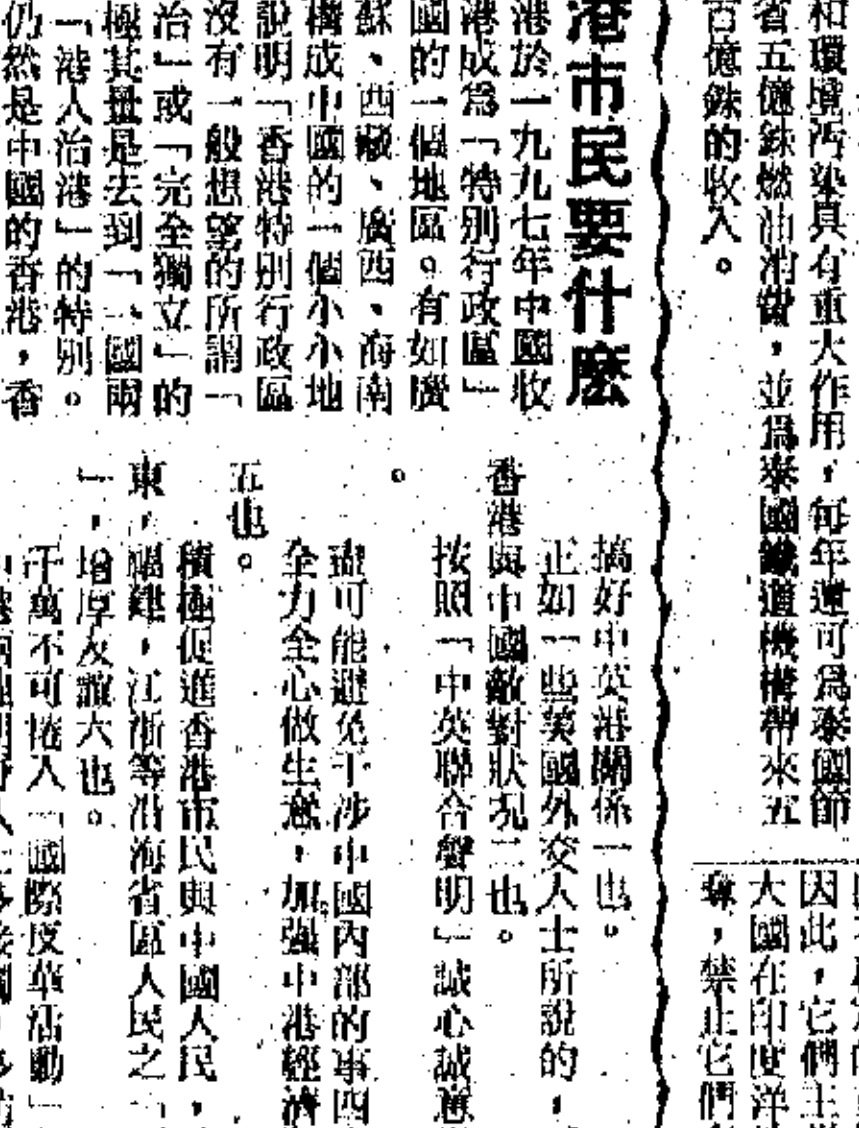 和環境污染具有重大作用，每年還可爲泰國節
省五億銖燃油消費，並爲泰國鐵道機構帶來五
百億銖的收入。
因此，它們主
大國在印度洋
，禁止它們
港市民要什麽
港於一九九七年中國收
港成爲「特別行政區」
國的一個地區。有如廣
蘇、西藏、廣西、海南
構成中國的一個小小地
說明「香港特別行政區
沒有一般想望的所謂「
治」或「完全獨立」的
極其量是去到「一國兩
「港人治港」的特別。
仍然是中國的香港，香
搞好中英港關係一也。
正如一些美國外交人士所說的，
香港與中國敵對狀況二也。
按照「中英聯合聲明」誠心誠意
。
盡可能避免干涉中國內部的事四
全力全心做生意，加強中港經濟
五也。
積極促進香港市民與中國人民，
東，福建，江浙等沿海省區人民之「
」，增厚友誼六也。
千萬不可捲入「國際反華活動」